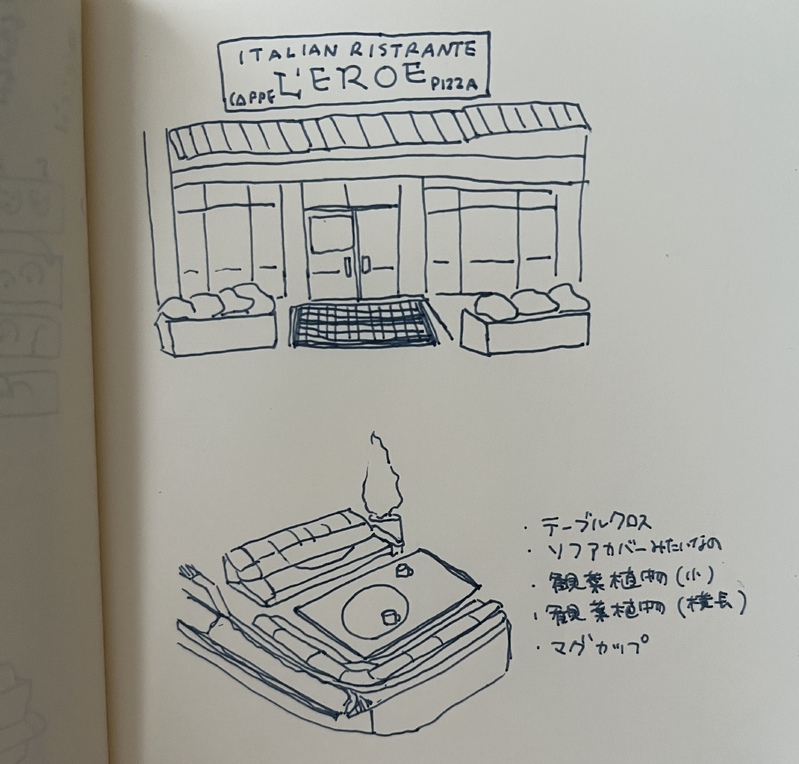 ITALIAN RISTRANTE
CAPPE L'EROE PIZZA
・テーブルクロス
・ソファカバーみたいなの
・観葉植物(小)
・観葉植物(横長)
・マグカップ